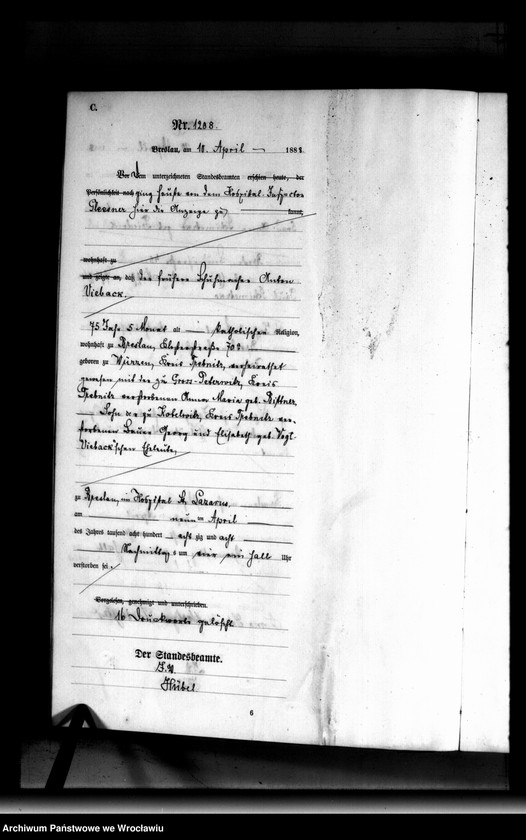 C.
Nr. 1208.
Breslau, am 10. April 1888.
Vor dem unterzeichneten Standesbeamten erschien heute, der
Persönlichkeit nach ging heute von dem Hospital-Inspector
hier die Anzeige zu, kannt,
wohnhaft zu
und zeigte an, daß der frühere Schuhmacher Anton
Vieback,
75 Jahr 5 Monat alt katholischer Religion,
wohnhaft zu Breslau,
geboren zu Kreis Trebnitz, verheirathet
gewesen mit der zu Gross-Peterwitz, Kreis
Trebnitz verstorbenen Anna Maria geb. Bittner,
Sohn der zu Kreis Trebnitz ver-
storbenen Bauer Georg und Elisabeth geb. Vogt
Vieback'schen Eheleute,
zu Breslau, im Hospital St. Lazarus,
am neunten April
des Jahres tausend acht hundert achtzig und acht
Nachmittags um vier ein halb Uhr
verstorben sei.
Vorgelesen, genehmigt und unterschrieben.
16 Druckworte gelöscht
Der Standesbeamte.
J. V.
Hübel
6
Archiwum Państwowe we Wrocławiu